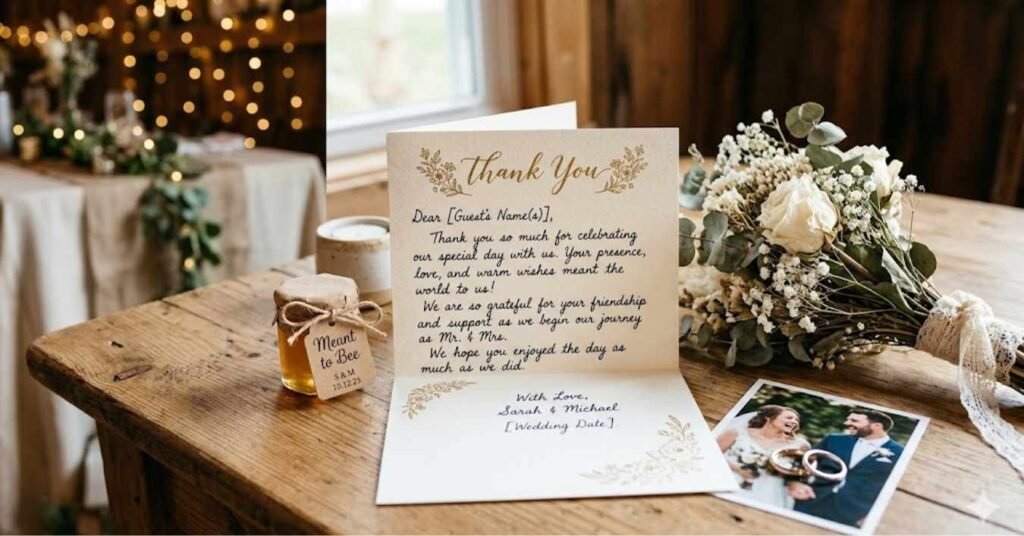 Thank You
Dear [Guest's Name(s)],
Thank you so much for celebrating
our special day with us. Your presence,
love, and warm wishes meant the
world to us!
We are so grateful for your friendship
and support as we begin our journey
as Mr. & Mrs.
We hope you enjoyed the day as
much as we did.
With Love,
Sarah & Michael
[Wedding Date].
Meant
to Bee
S & M
10.12.25